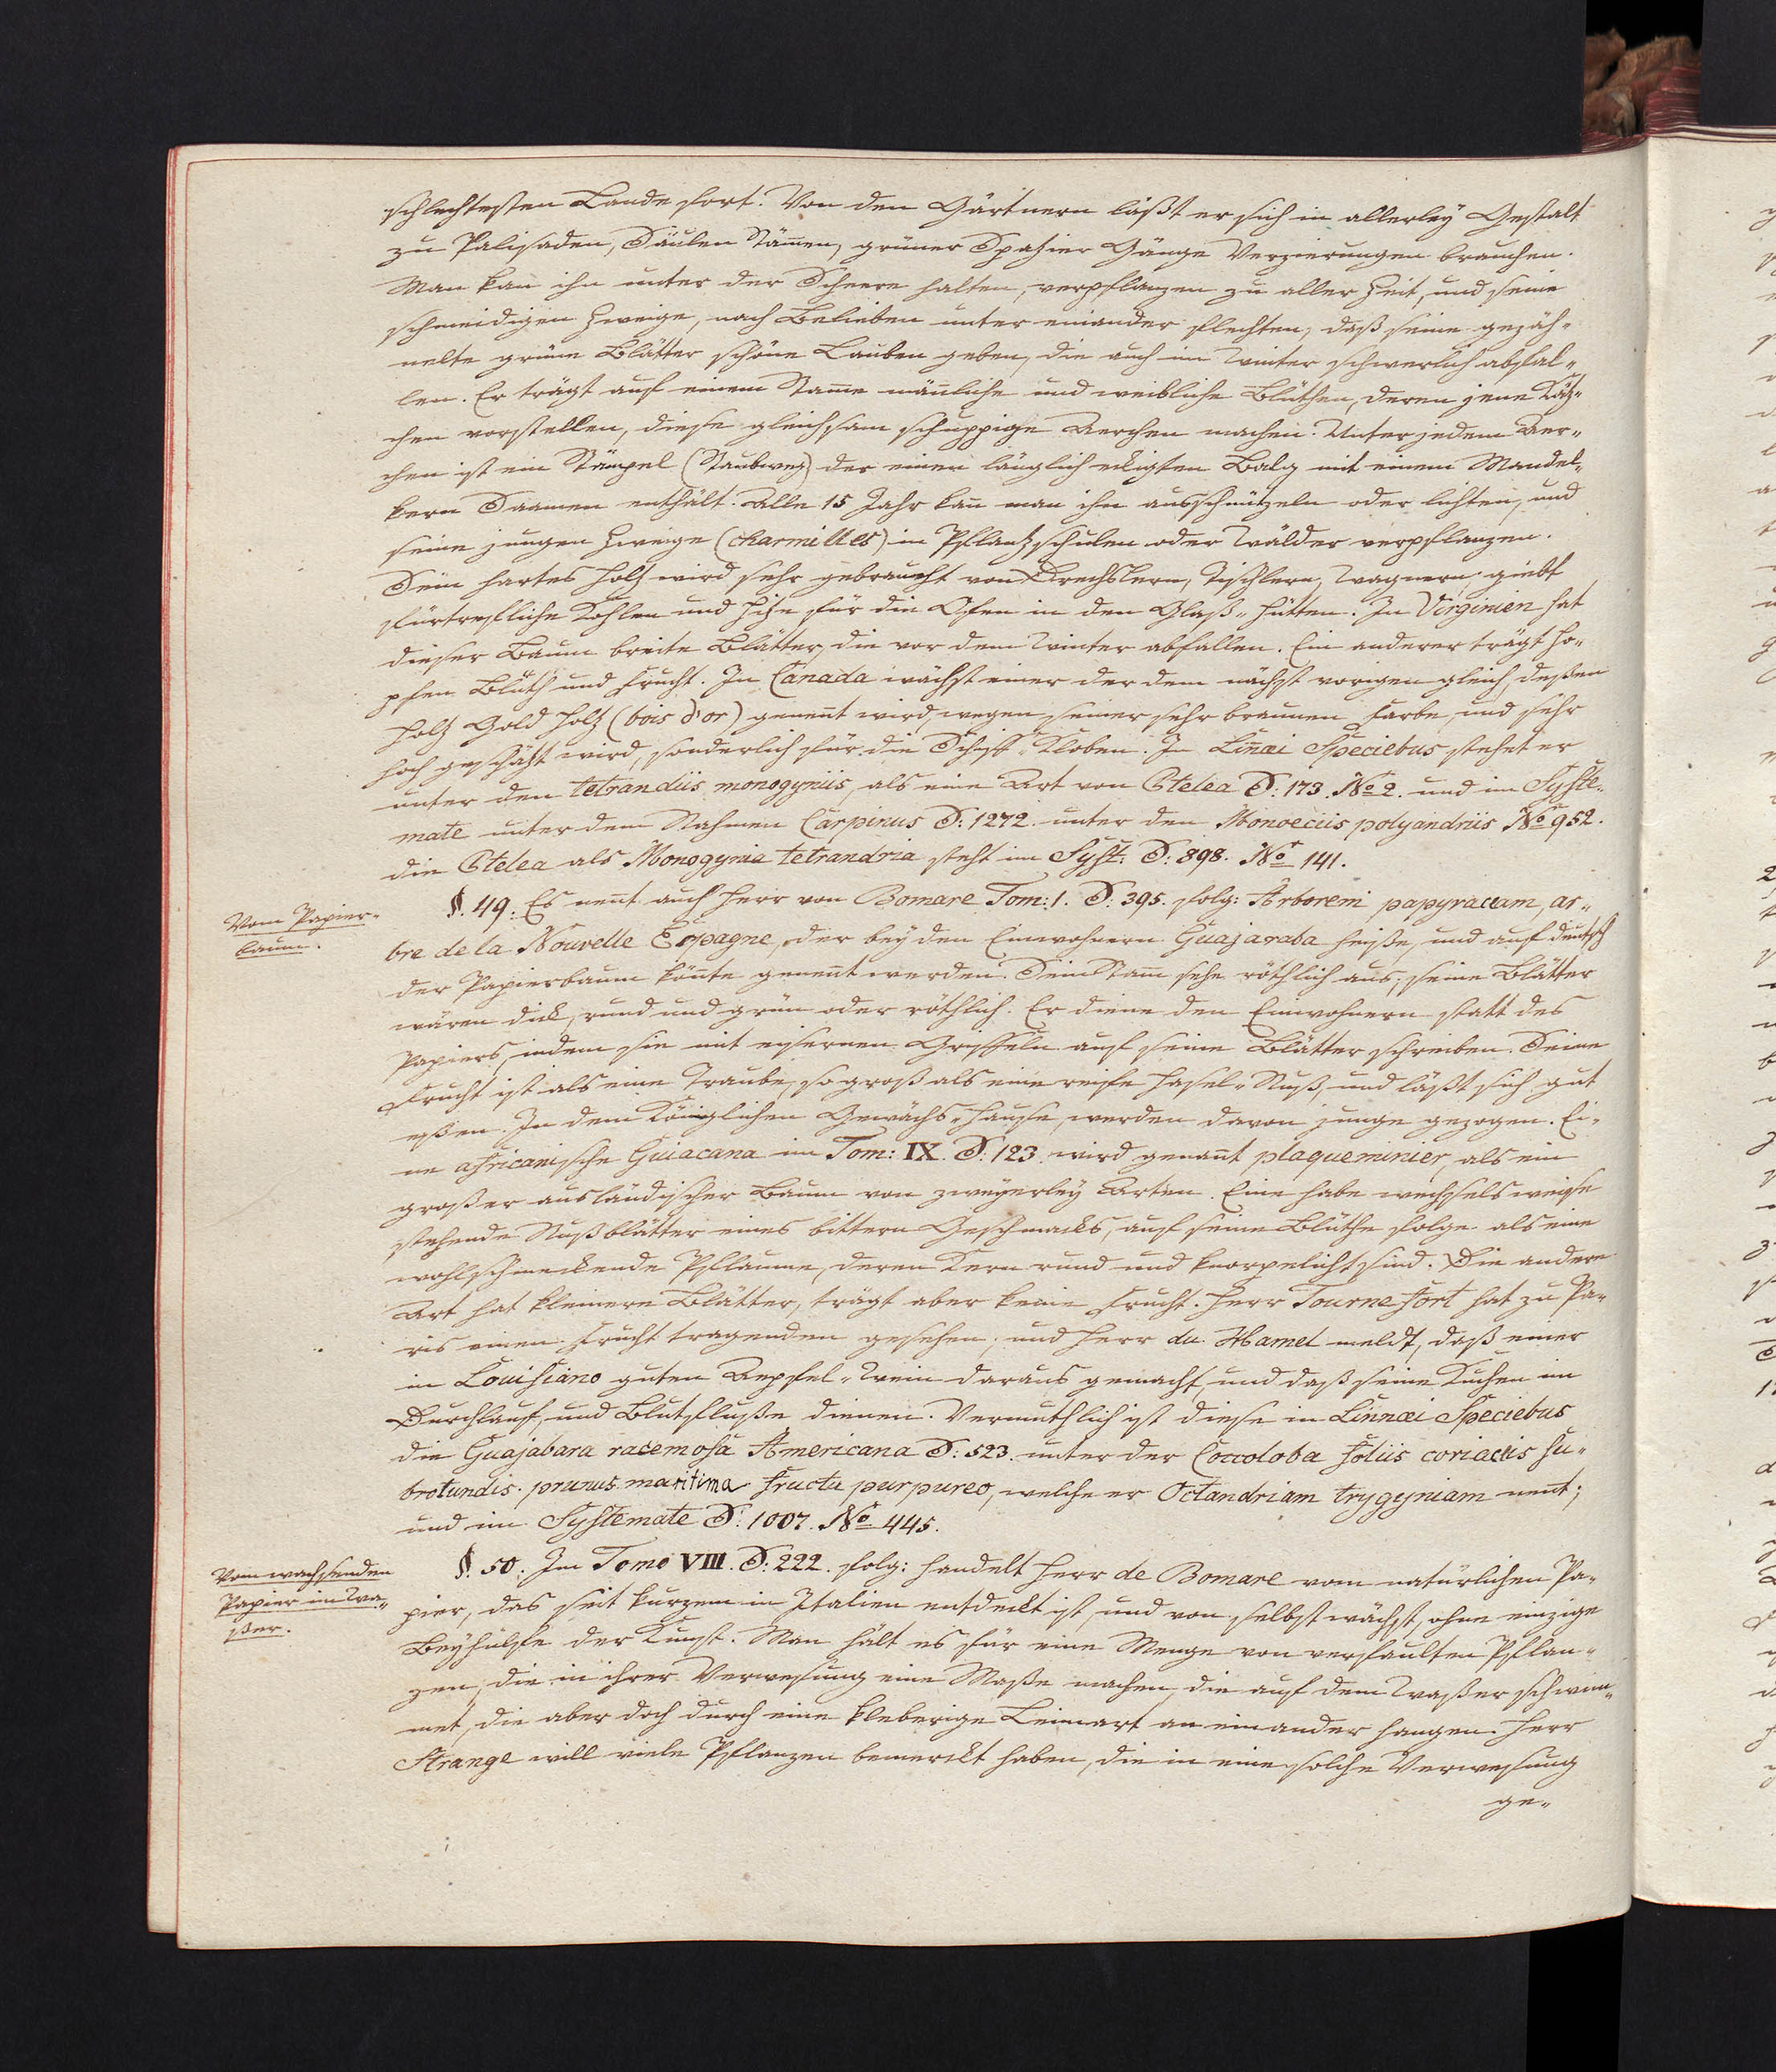 schlechtesten Lande fort. Von den Gärtnern läßt er sich in allerleÿ Gestalt
zu Palisaden, Säulen Stämen, grüner Spazier Gänge Verzierungen brauchen.
Man kan ihn unter der Scheere halten, verpflanzen zu aller Zeit, und seine
schmeidigen Zweige, nach Belieben unter einander flechten, daß seine gezäh-
nelte grüne Blätter schöne Lauben geben, die auch im Winter schwerlich abfal-
len. Er trägt auf einem Stame mänliche und weibliche Blüthen, deren jene Kätz-
chen vorstellen, diese gleichsam schuppige Aerchen machen. Unter jedem Aer-
chen ist ein Stämpel (Staubweg) der einen länglich eckigten Balg mit einem Mandel-
kern Saamen enthält. Alle 15 Jahr kan man ihn ausschnützeln oder lichten, und
seine jungen Zweige (charmilles) in Pflantzschulen oder Wälder verpflanzen.
Sein hartes Holz wird sehr gebraucht von Drechslern, Tischlern, Wagnern, giebt
fürtrefliche Kohlen und Hize für die Ofen in den Glaß-Hütten. In Virginien hat
dieser Baum breite Blätter, die vor dem Winter abfallen. Ein anderer trägt Ho-
pfen Blüth und Frucht. In Canada wächst einer der dem nächst vorigen gleich, deßen
Holz Gold Holz (bois d'or) genent wird, wegen seiner sehr braunen Farbe, und sehr
hoch geschäzt wird, sonderlich für die Schiff-Kloben. In Linæi Speciebus stehet er
unter den tetrandiis monogyniis, als eine Art von Ptelea S: 173. No 2. und im Syste-
mate unter dem Nahmen Carpinus S: 1272. unter den Monoeciis polyandriis No 952.
die Ptelea als Monogynia tetrandria steht im Syst: S: 898. No 141.
Vom Papier-
baum.
§. 49: Es nent auch Herr von Bomare Tom: 1. S: 395. folg: Arborem papyraceam, ar-
bre de la Nouvelle Espagne, der beÿ den Einwohnern Guajaraba heiße, und auf deutsch
der Papierbaum könte genent werden. Sein Stam sehe röthlich aus; seine Blätter
wären dick, rund und grün oder röthlich. Er diene den Einwohnern statt des
Papiers, indem sie mit eisernen Griffeln auf seine Blätter schreiben. Seine
Frucht ist als eine Traube, so groß als eine reife Hasel-Nuß, und läßt sich gut
eßen. In dem Königlichen Gewächs-Hause, werden davon junge gezogen. Ei-
ne africanische Guiacana im Tom: IX. S: 123. wird genant plaqueminier, als ein
großer ausländischer Baum von zweÿerleÿ Arten. Eine habe wechselsweise
stehende Nußblätter eines bittern Geschmacks, auf seine Blüthe folge als eine
wohlschmeckende Pflaume, deren Kern rund und knorpelicht sind. Die andere
Art hat kleinere Blätter, trägt aber keine Frucht. Herr Tournefort hat zu Pa-
ris einen Frucht tragenden gesehen, und Herr du Hamel meldt, daß einer
in Louisiano guten Aepfel-Wein daraus gemacht, und daß seine Kuchen im
Durchlauf, und Blutfluße dienen. Vermuthlich ist diese in Linnæi Speciebus
die Guajabara racemosa Americana S: 523. unter der Coccoloba foliis coriaceis su-
brotundis. prunus maritima fructu purpureo, welche er Octandriam trygyniam nent;
und im Systemate S: 1007. No 445.
Vom wachsenden
Papier im Wa-
ßer.
§. 50. Im Tomo VIII. S: 222. folg: handelt Herr de Bomare vom natürlichen Pa-
pier, das seit kurzem in Italien entdeckt ist, und von selbst wächst, ohne einzige
Beÿhülfe der Kunst. Man hält es für eine Menge von verfaulten Pflan-
zen, die in ihrer Verwesung eine Maße machen, die auf dem Waßer schwim-
met, die aber doch durch eine kleberige Leimart an einander hangen. Herr
Strange will viele Pflanzen bemerckt haben, die in eine solche Verwesung
ge-